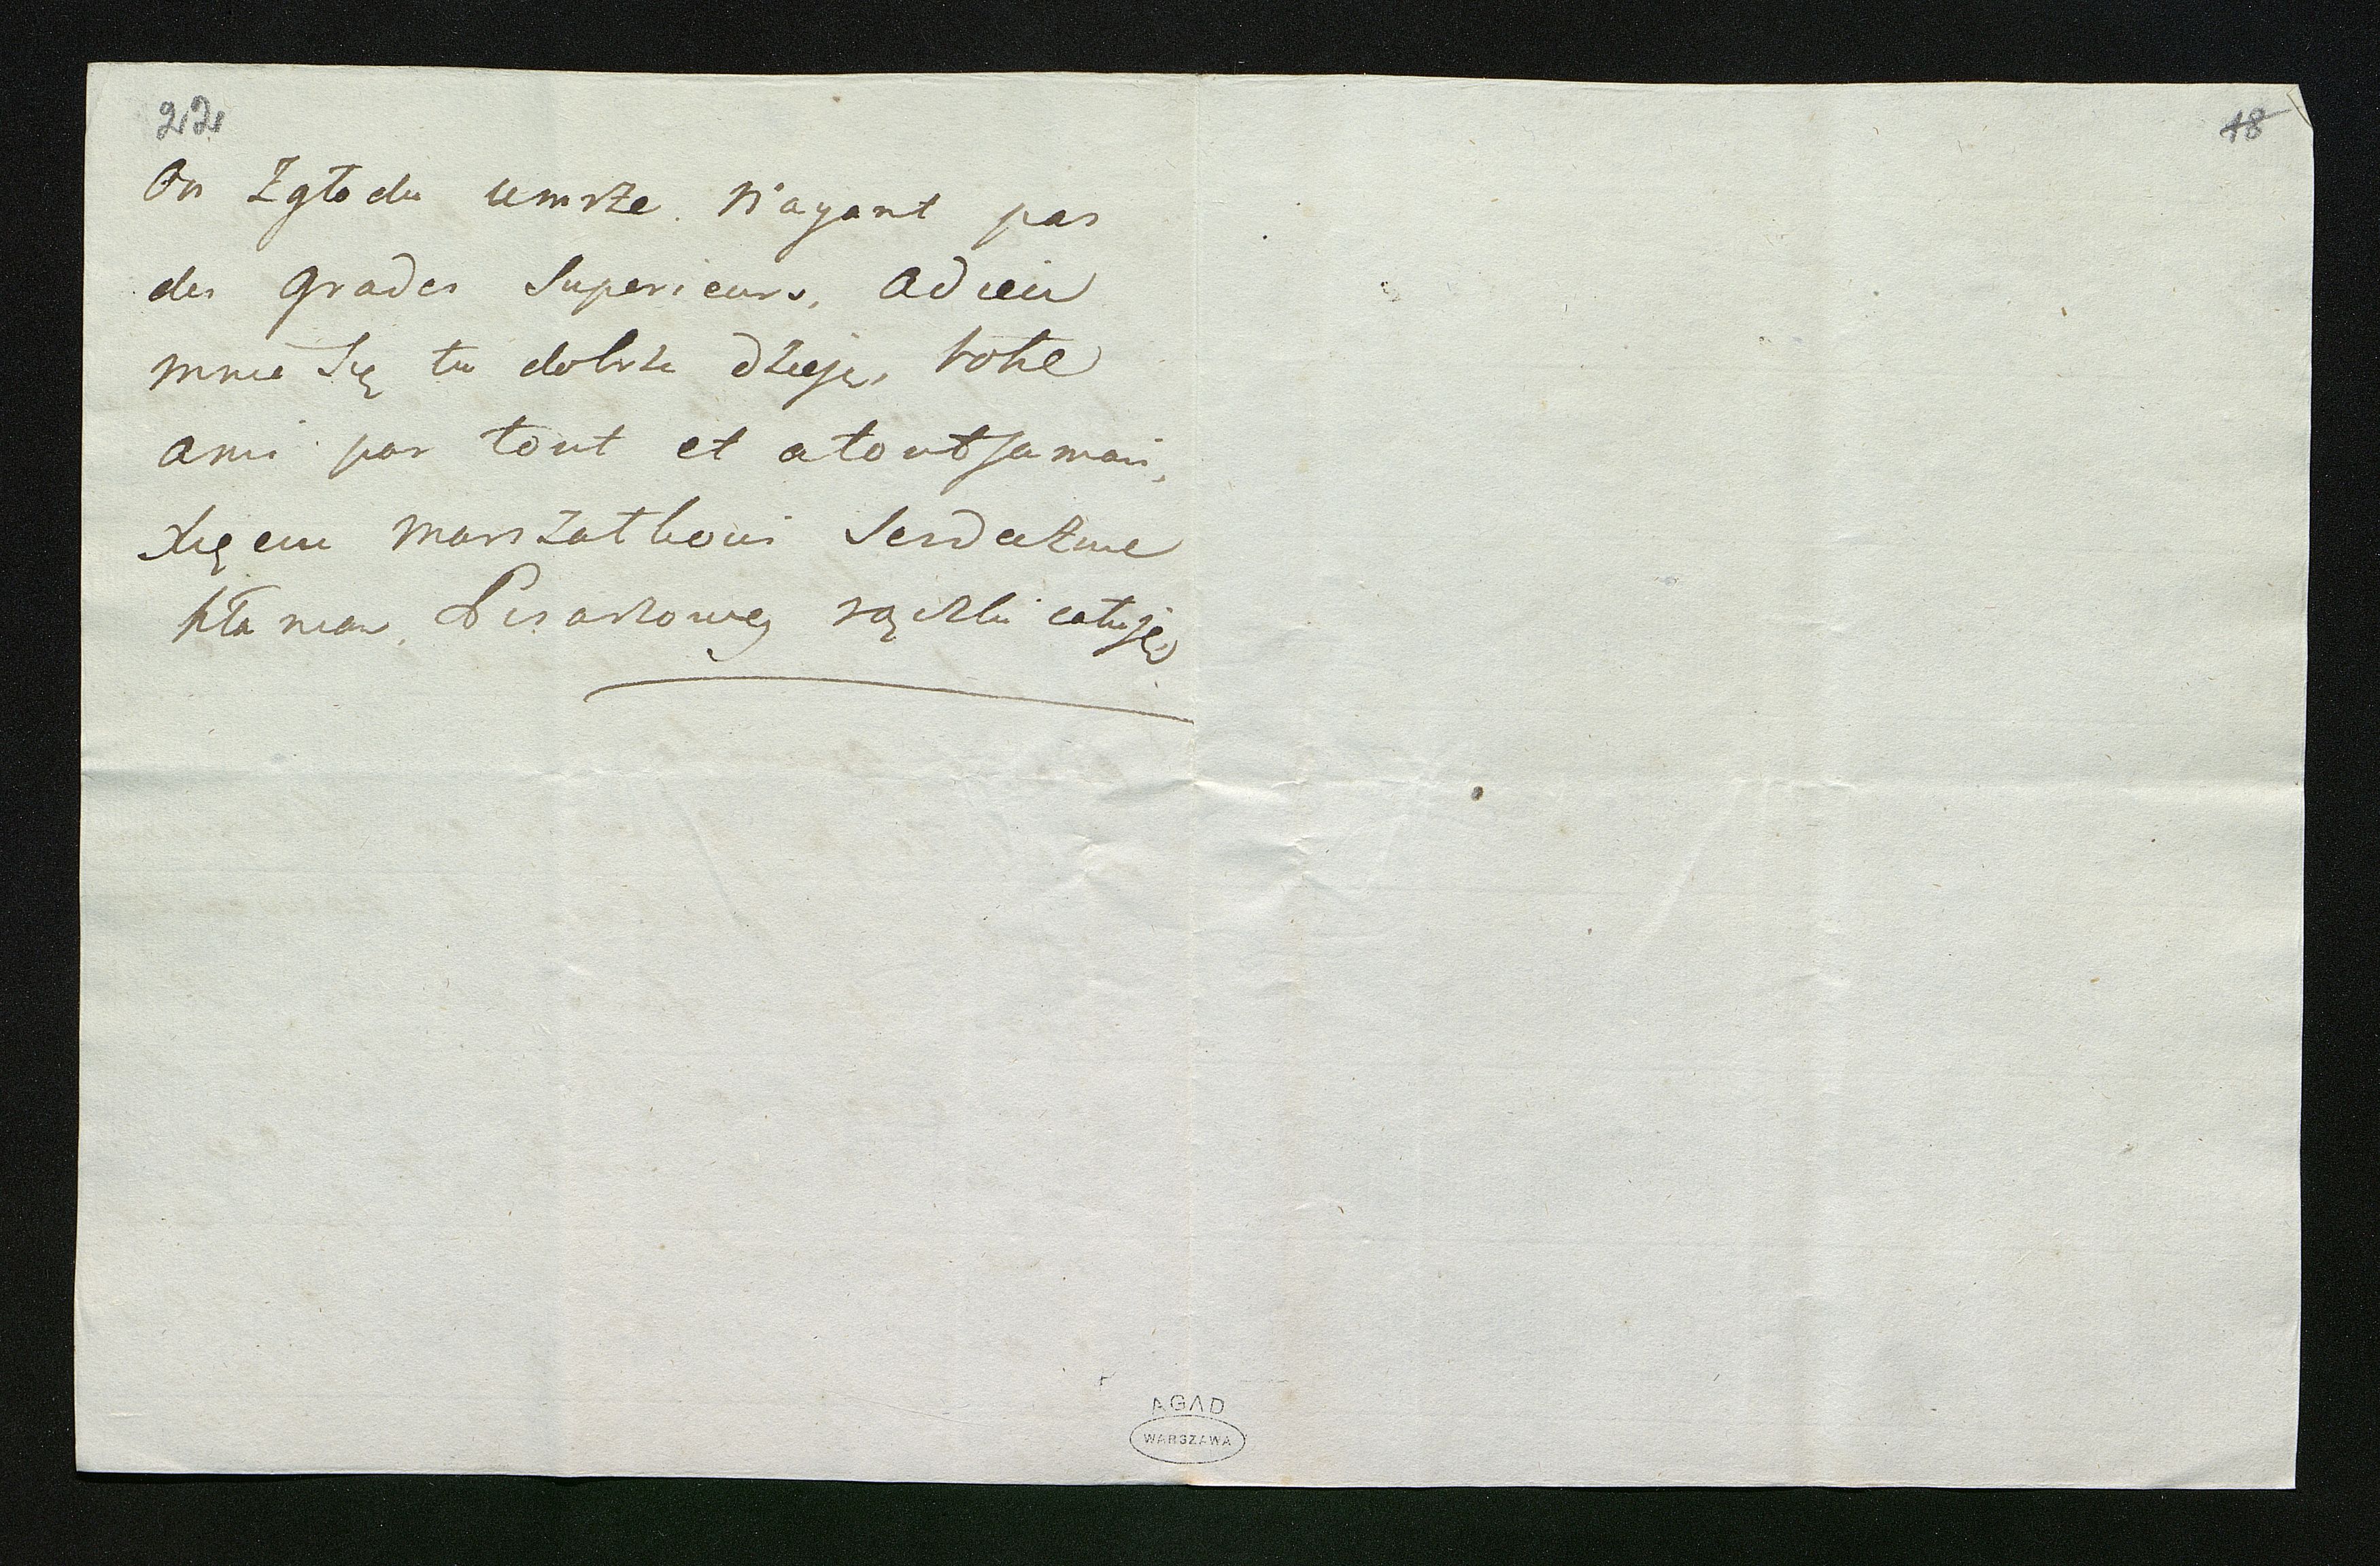 22
18
On Zgłodu umrze. N'ayant pas
des grades Superieurs, adieu
mnie Się tu dobrze dzieje, votre
ami par tout et a tout jamais,
Xięciu Marszałkowi Serdecznie
kłaniam, Pisarzowey rączki całuję
AGAD
WARSZAWA